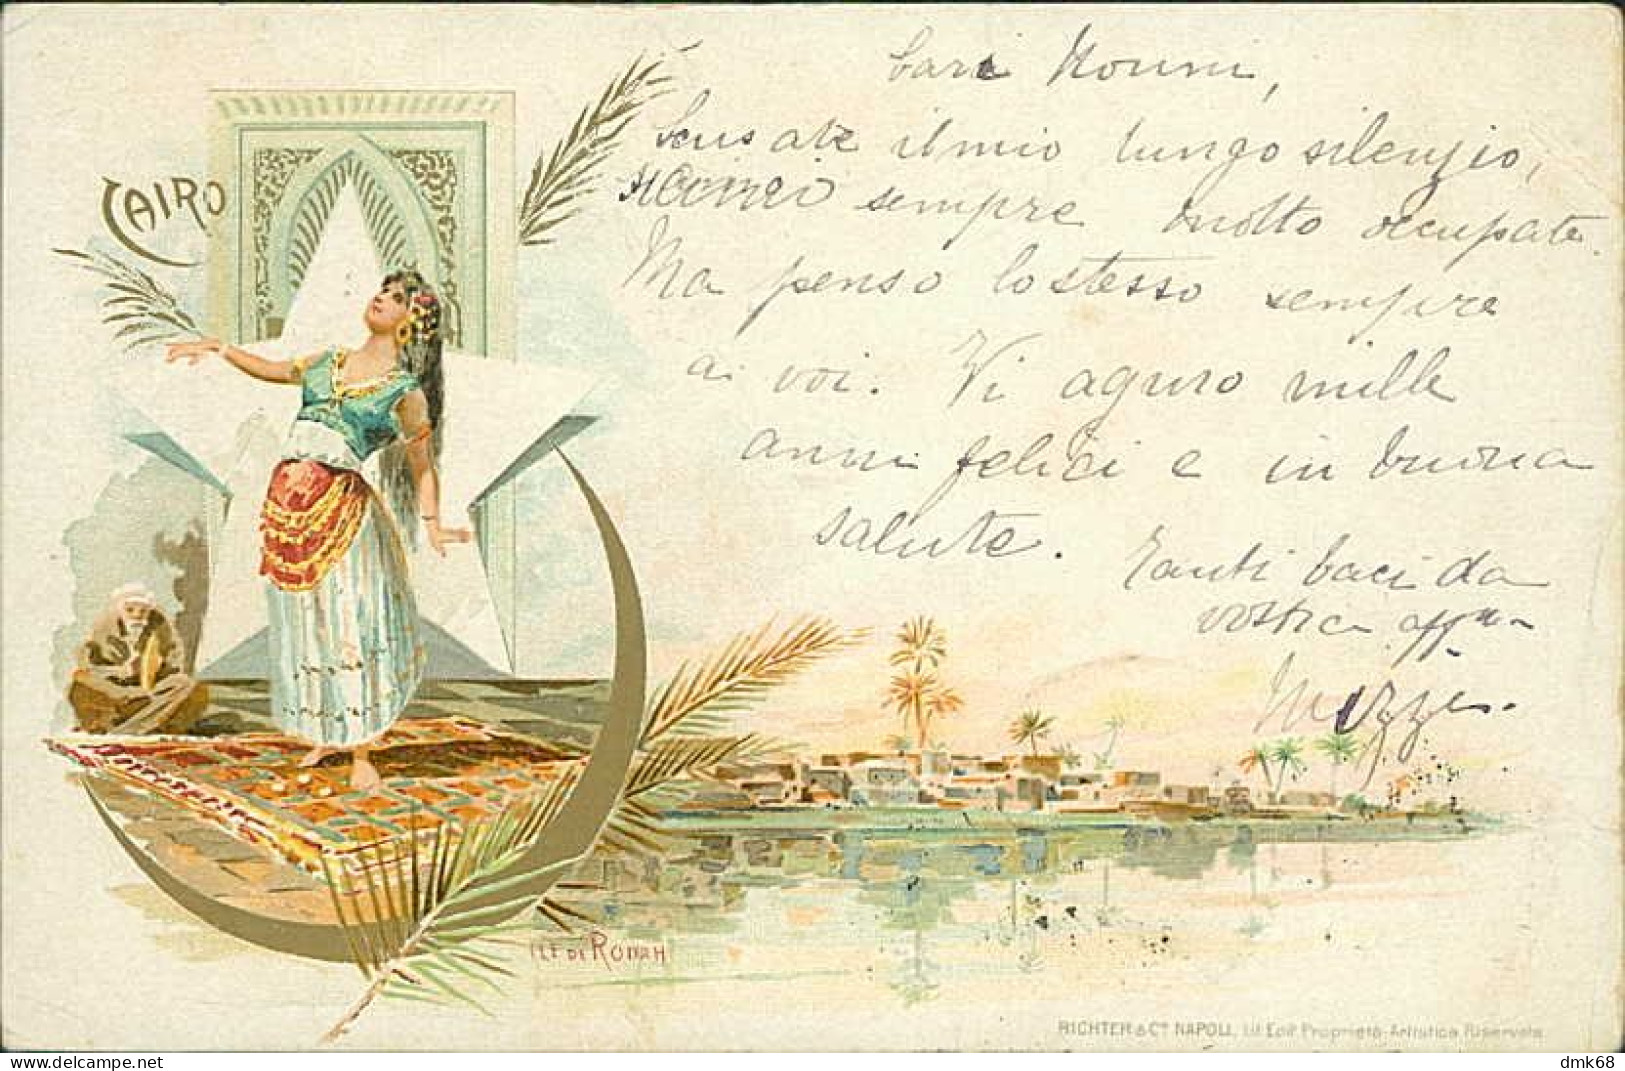 CAIRO
Cari Nonni,
Scusate il mio lungo silenzio,
sempre molto occupata.
Ma penso lo stesso sempre
a voi. Vi aguro mille
anni felici e in buona
salute.
Tanti baci da
vostra aff.ma
ILE DI RODAH
RICHTER & Cº NAPOLI, Lit. Edit. Proprietà Artistica Riservata
dmk68